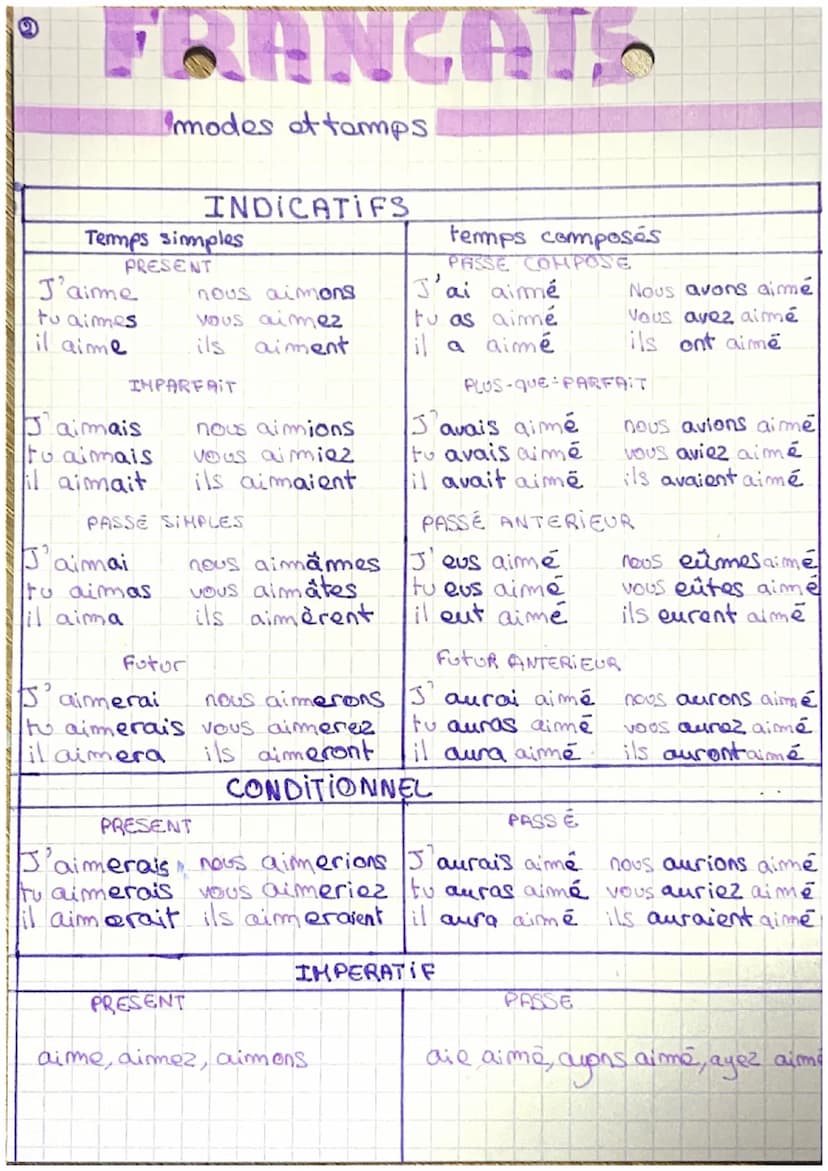 2
FRANCAIS
modes et temps
INDICATIFS
Temps simples temps composés
PRESENT PASSÉ COMPOSÉ
J'aime nous aimons J'ai aimé Nous avons aimé
tu aimes vous aimez tu as aimé Vous avez aimé
il aime ils aiment il a aimé ils ont aimé
IMPARFAIT PLUS-QUE-PARFAIT
J'aimais nous aimions J'avais aimé nous avions aimé
tu aimais vous aimiez tu avais aimé vous aviez aimé
il aimait ils aimaient il avait aimé ils avaient aimé
PASSÉ SIMPLES PASSÉ ANTERIEUR
J'aimai nous aimâmes J'eus aimé nous eûmes aimé
tu aimas vous aimâtes tu eus aimé vous eûtes aimé
il aima ils aimèrent il eut aimé ils eurent aimé
Futur FUTUR ANTERIEUR
J'aimerai nous aimerons J'aurai aimé nous aurons aimé
tu aimerais vous aimerez tu auras aimé vous aurez aimé
il aimera ils aimeront il aura aimé ils auront aimé
CONDITIONNEL
PRESENT PASSÉ
J'aimerais nous aimerions J'aurais aimé nous aurions aimé
tu aimerais vous aimeriez tu auras aimé vous auriez aimé
il aimerait ils aimeraient il aura aimé ils auraient aimé
IMPERATIF
PRESENT PASSE
aime, aimez, aimons aie aimé, ayons aimé, ayez aimé